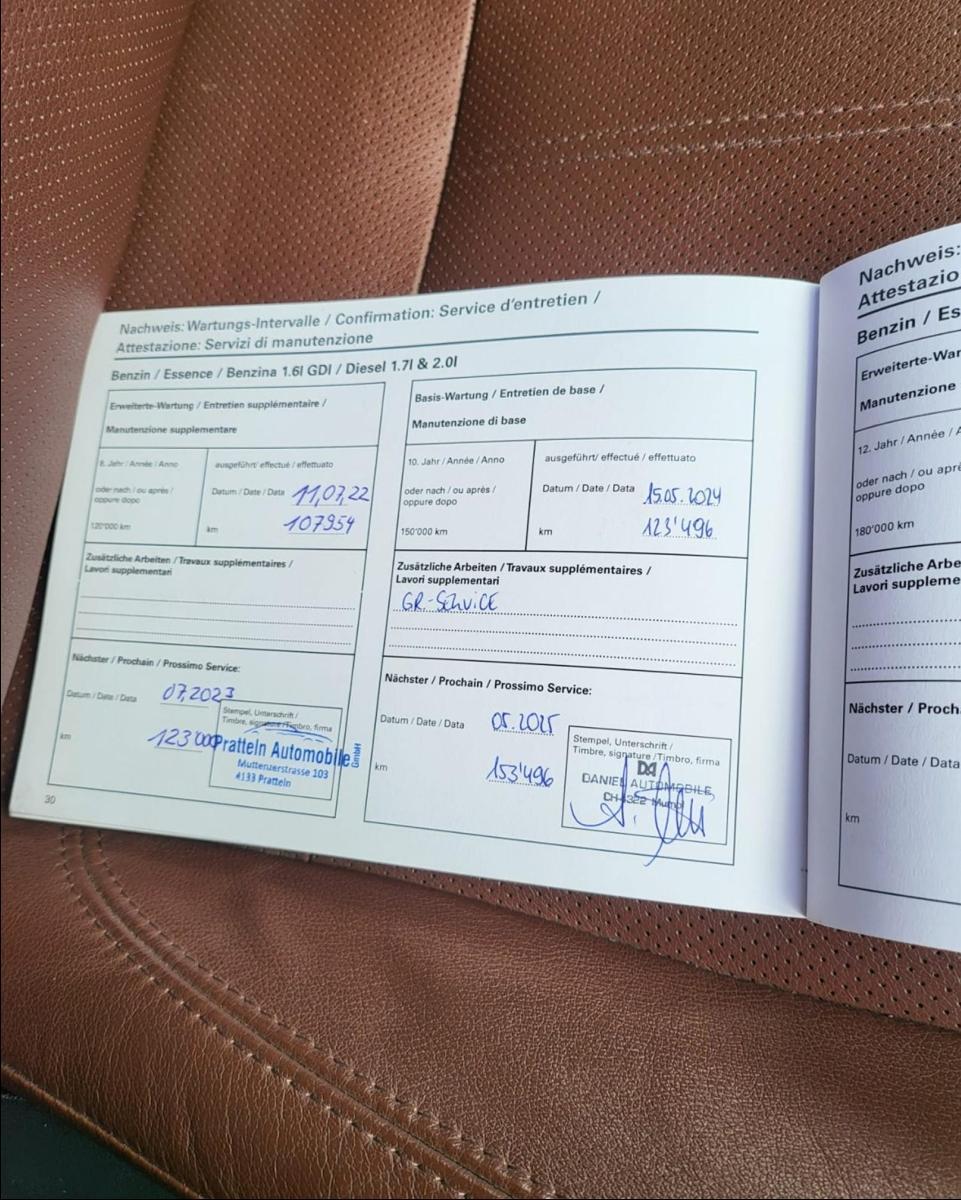 Nachweis: Wartungs-Intervalle / Confirmation: Service d'entretien /
Attestazione: Servizi di manutenzione
Benzin / Essence / Benzina 1.6l GDI / Diesel 1.7l & 2.0l
Erweiterte-Wartung / Entretien supplémentaire /
Manutenzione supplementare
8. Jahr / Année / Anno
ausgeführt/ effectué / effettuato
oder nach / ou après /
oppure dopo
Datum / Date / Data 11,07,22
120'000 km
km 107954
Zusätzliche Arbeiten / Travaux supplémentaires /
Lavori supplementari
Nächster / Prochain / Prossimo Service:
Datum / Date / Data 07,2023
km 123'000
Stempel, Unterschrift /
Timbre, signature /Timbro, firma
Pratteln Automobile GmbH
Muttenzerstrasse 103
4133 Pratteln
30
Basis-Wartung / Entretien de base /
Manutenzione di base
10. Jahr / Année / Anno
ausgeführt/ effectué / effettuato
oder nach / ou après /
oppure dopo
Datum / Date / Data 15.05.2024
150'000 km
km 123'496
Zusätzliche Arbeiten / Travaux supplémentaires /
Lavori supplementari
GR-SERVICE
Nächster / Prochain / Prossimo Service:
Datum / Date / Data 05.2025
km 153'496
Stempel, Unterschrift /
Timbre, signature /Timbro, firma
DANIEL AUTOMOBILE,
Nachweis:
Attestazio
Benzin / Es
Erweiterte-War
Manutenzione
12. Jahr / Année / A
oder nach / ou apr
oppure dopo
180'000 km
Zusätzliche Arbe
Lavori suppleme
Nächster / Proch
Datum / Date / Data
km